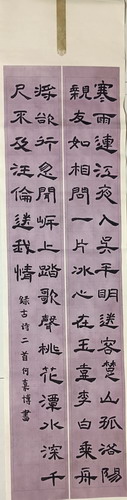 寒雨連江夜入吳平明送客楚山孤洛陽
親友如相問一片冰心在玉壺李白乘舟
將欲行忽聞岸上踏歌聲桃花潭水深千
尺不及汪倫送我情
錄古詩二首何博書